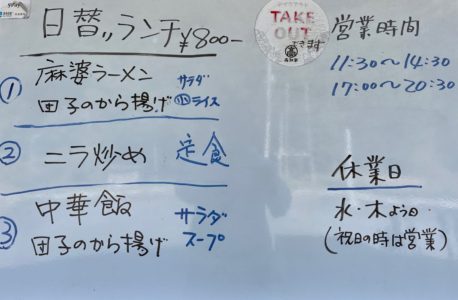 日替りランチ ¥800-
TAKE OUT
できます
① 麻婆ラーメン サラダ
団子のから揚げ 小ライス
② ニラ炒め 定食
③ 中華飯 サラダ
団子のから揚げ スープ
営業時間
11:30〜14:30
17:00〜20:30
休業日
水・木よう日
(祝日の時は営業)